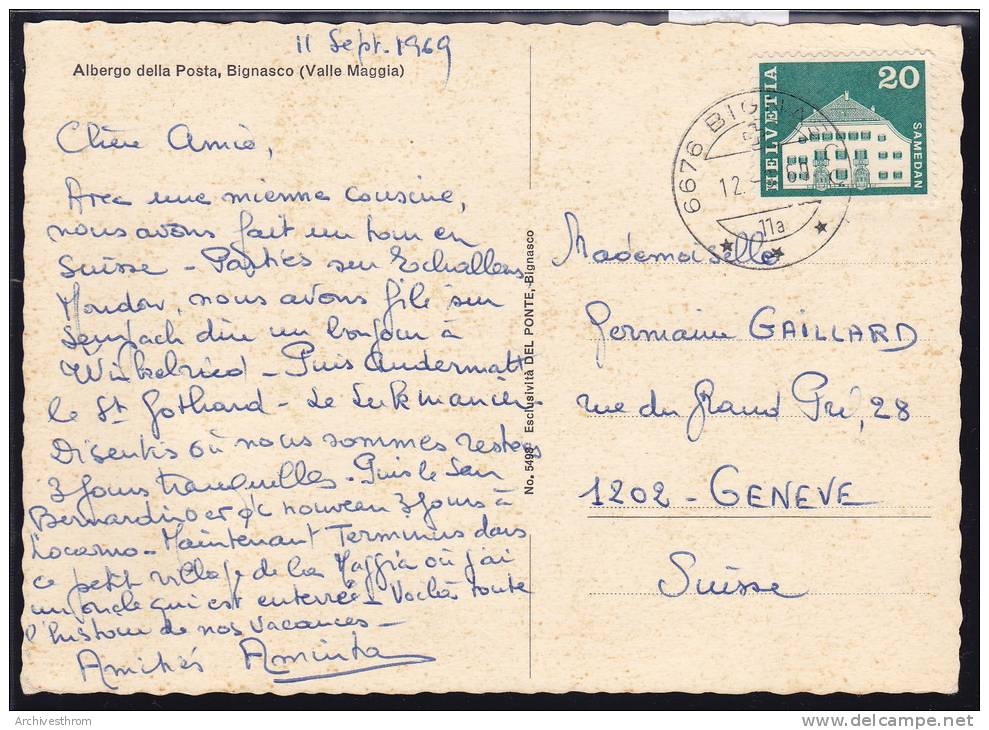 11 Sept. 1969
Albergo della Posta, Bignasco (Valle Maggia)
Chère Amie,
Avec une mienne cousine,
nous avons fait un tour en
Suisse - Parties sur Echallens
Moudon, nous avons filé sur
Sempach dire un bonjour à
Winkelried - Puis Andermatt
le St Gothard - Le Lukmanier -
Disentis où nous sommes restées
3 jours tranquilles - Puis le San
Bernardino et de nouveau 3 jours à
Locarno - Maintenant Terminus dans
ce petit village de la Maggia où j'ai
un oncle qui est enterré - Voilà toute
l'histoire de nos vacances -
Amitiés Aminta
No. 5498 Esclusività DEL PONTE, Bignasco
HELVETIA
20
SAMEDAN
6676 BIGNA
12.
11a
Mademoiselle
Germaine GAILLARD
rue du Grand Pré, 28
1202 - GENEVE
Suisse
Archivesthrom
delcampe.net